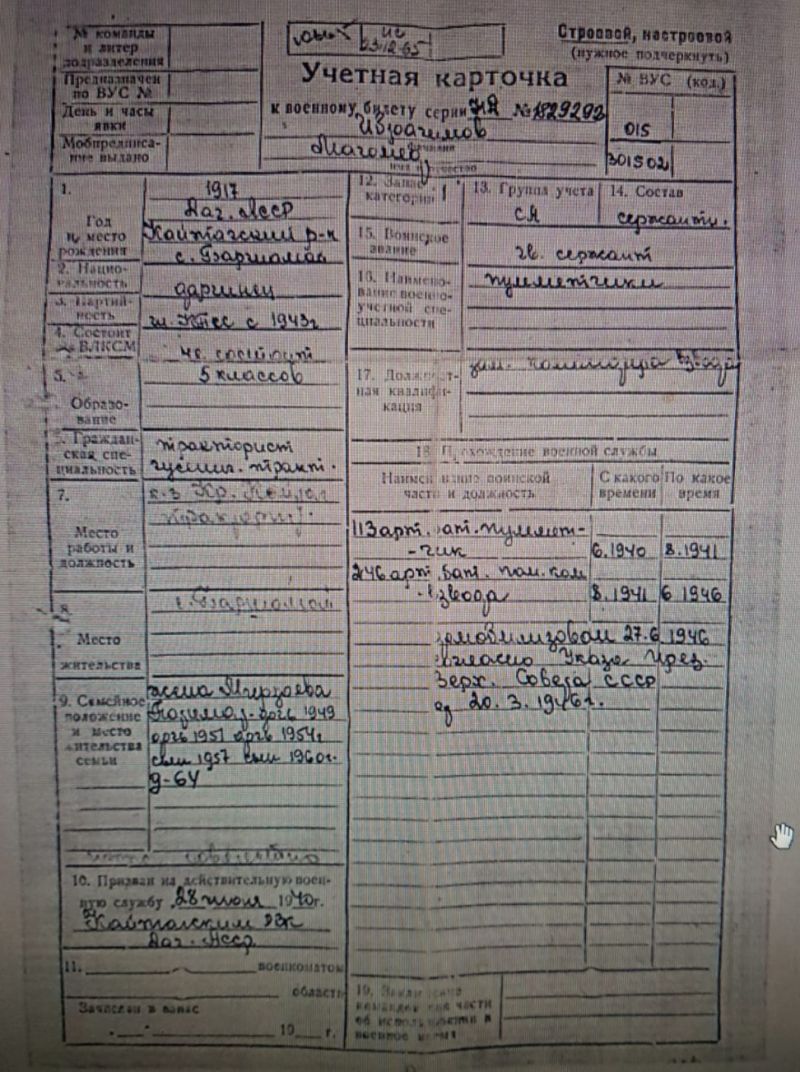 № команды
и литер
подразделения
Предназначен
по ВУС №
День и часы
явки
Мобпредписа-
ние выдано
Строевой, нестроевой
(нужное подчеркнуть)
Учетная карточка
к военному билету серии НЯ №
Магомед
№ ВУС (код.)
015
301502
1.
Год
и место
рождения
1917
Даг. АССР
Кайтагский р-н
с. Баршамай
2. Нацио-
нальность
даргинец
3. Партий-
ность
чл. КПСС с 1943г
4. Состоит
в ВЛКСМ
не состоит
5.
Образо-
вание
5 классов
6. Граждан-
ская спе-
циальность
тракторист
гусенич. тракт.
7.
Место
работы и
должность
к-з Кр.
тракторист
8.
Место
жительства
с. Баршамай
9. Семейное
положение
и место
жительства
семьи
жена
дочь 1949
дочь 1951 дочь 1954г
сын 1957 сын 1960г.
д-64
10. Призван на действительную воен-
ную службу 28 июля 1940г.
Кайтагским РВК
Даг. АССР
11. военкоматом
область
Зачислен в запас
19 г.
12. Запас
категории 1
13. Группа учета
СА
14. Состав
сержант.
15. Воинское
звание
гв. сержант
16. Наимено-
вание военно-
учетной спе-
циальности
пулеметчики
17. Должност-
ная квалифи-
кация
зам. командира взвода
18. Прохождение военной службы
Наименование воинской
части и должность
С какого
времени
По какое
время
113 арт. бат. пулемет-
-чик 6.1940 8.1941
246 арт. бат. пом. ком.
взвода 8.1941 6 1946
демобилизован 27.6 1946
согласно Указа През.
Верх. Совета СССР
от 20.3.1946г.
19.
об использовании в
военное время